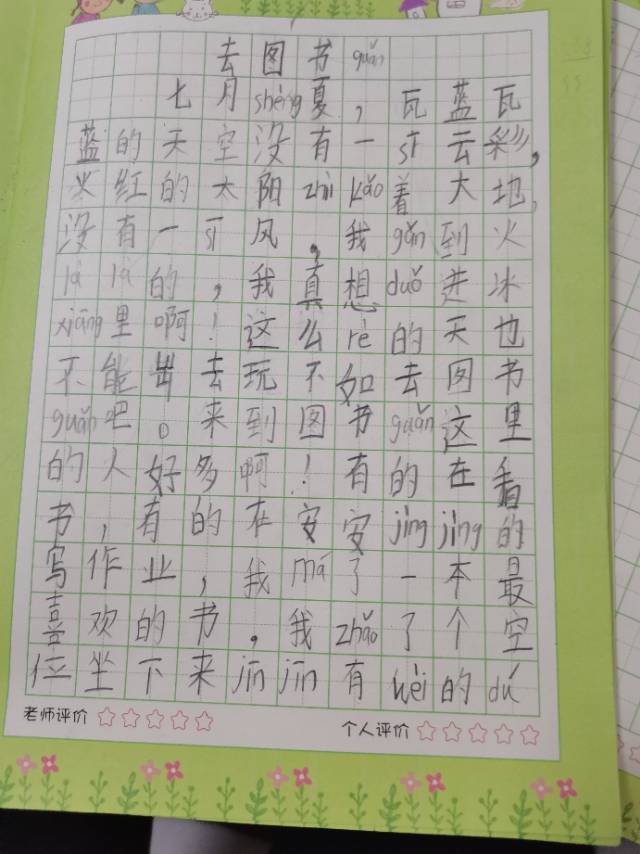 去图书guǎn
七月shèng夏，瓦蓝瓦
蓝的天空没有一sī云彩，
火红的太阳zhì kǎo着大地，
没有一sī风。我gǎn到火
là là的，我真想duǒ进冰
xiāng里啊！这么rè的天也
不能出去玩不如去图书
guǎn吧。来到图书guǎn这里
的人好多啊！有的在看
书，有的在安安jìng jìng的
写作业，我ná了一本最
喜欢的书。我zhǎo了个空
位坐下来jīn jīn有wèi的dú
老师评价
个人评价